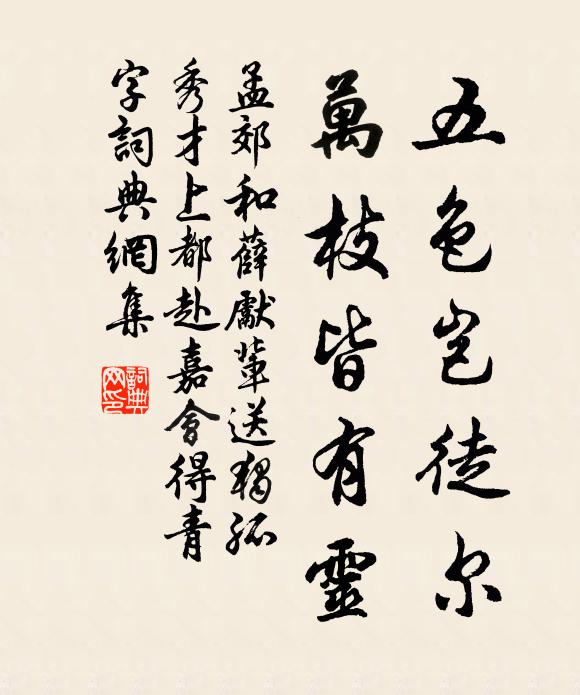 五色岂徒尔
萬枝皆有靈
孟郊和薛獻輩送獨孤
秀才上都赴嘉會得青
字詞典網集
詞典网印